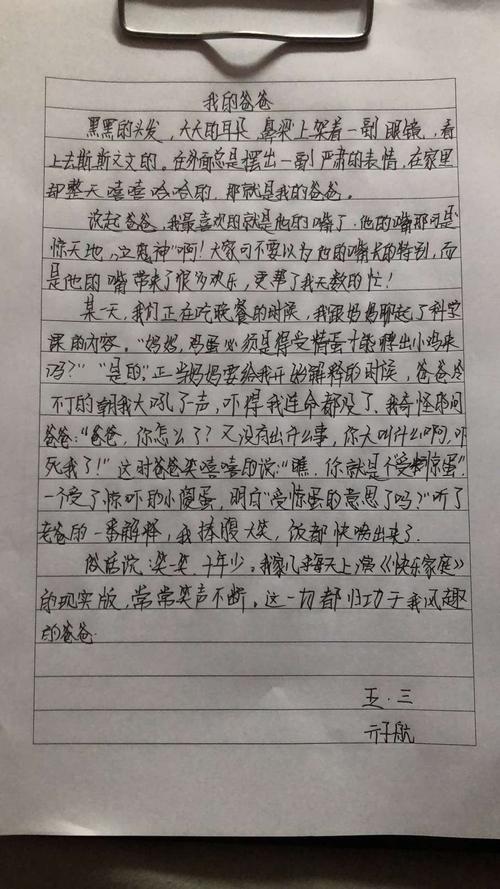 我的爸爸
黑黑的头发，大大的耳朵，鼻梁上架着一副眼镜，看
上去斯斯文文的。在外面总是摆出一副严肃的表情，在家里
却整天嘻嘻哈哈的，那就是我的爸爸。
说起爸爸，我最喜欢的就是他的嘴了，他的嘴那可是"
惊天地，泣鬼神"啊！大家可不要以为他的嘴长的特别，而
是他的嘴带来了很多欢乐，更帮了我无数的忙！
某一天，我们正在吃晚餐的时候，我跟妈妈聊起了科学
课的内容。"妈妈，鸡蛋必须是得受精蛋才能孵出小鸡来
吗？""是的"。正当妈妈要给我开始解释的时候，爸爸冷
不丁的朝我大吼了一声，吓得我连命都没了，我奇怪的问
爸爸："爸爸，你怎么了？又没有出什么事，你大叫什么啊，吓
死我了！"这时爸爸笑嘻嘻的说："瞧，你就是个受惊蛋"。
一个受了惊吓的小傻蛋，明白"受惊蛋的意思了吗？"听了
老爸的一番解释，我捧腹大笑，饭都快喷出来了。
俗话说：笑一笑，十年少。我家几乎每天上演《快乐家庭》
的现实版，常常笑声不断。这一切都归功于我风趣
的爸爸
五.三
航